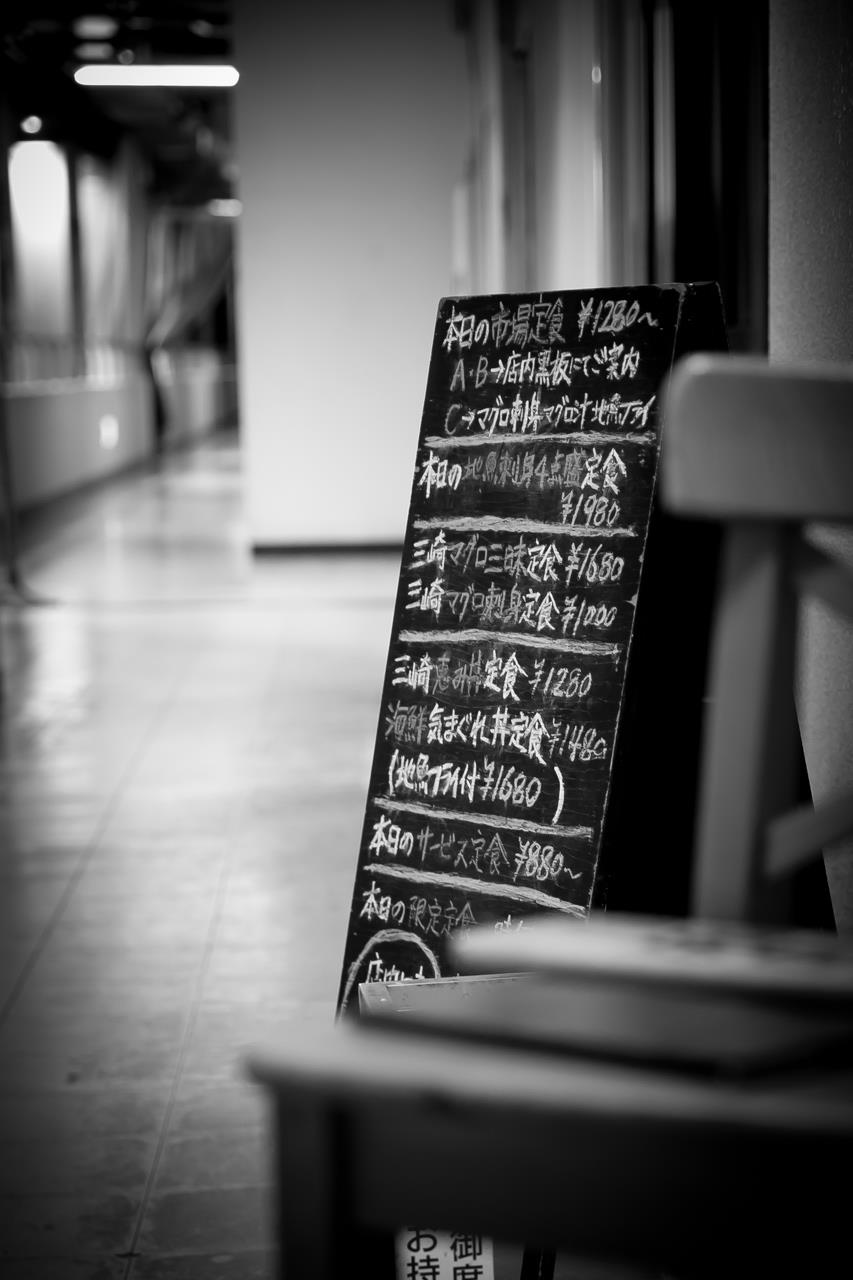 本日の市場定食 ¥1280〜
A・B→店内黒板にてご案内
C→マグロ刺身マグロ汁地魚フライ
本日の地魚刺身4点盛定食
¥1980
三崎マグロ三昧定食¥1680
三崎マグロ刺身定食¥1000
三崎恵み丼定食¥1280
海鮮気まぐれ丼定食¥1480
(地魚フライ付¥1680)
本日のサービス定食 ¥880〜
本日の限定定食
店内
御席
お持